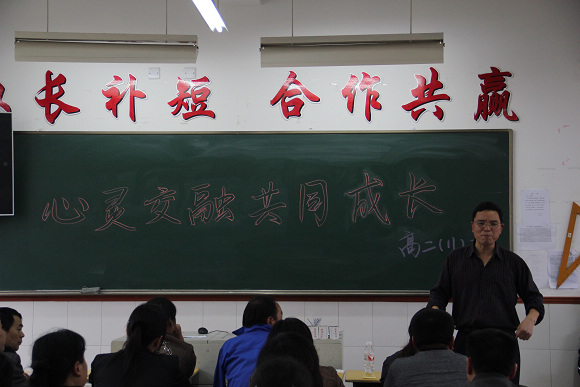 长补短 合作共赢
心灵交融共同成长
高二(11)